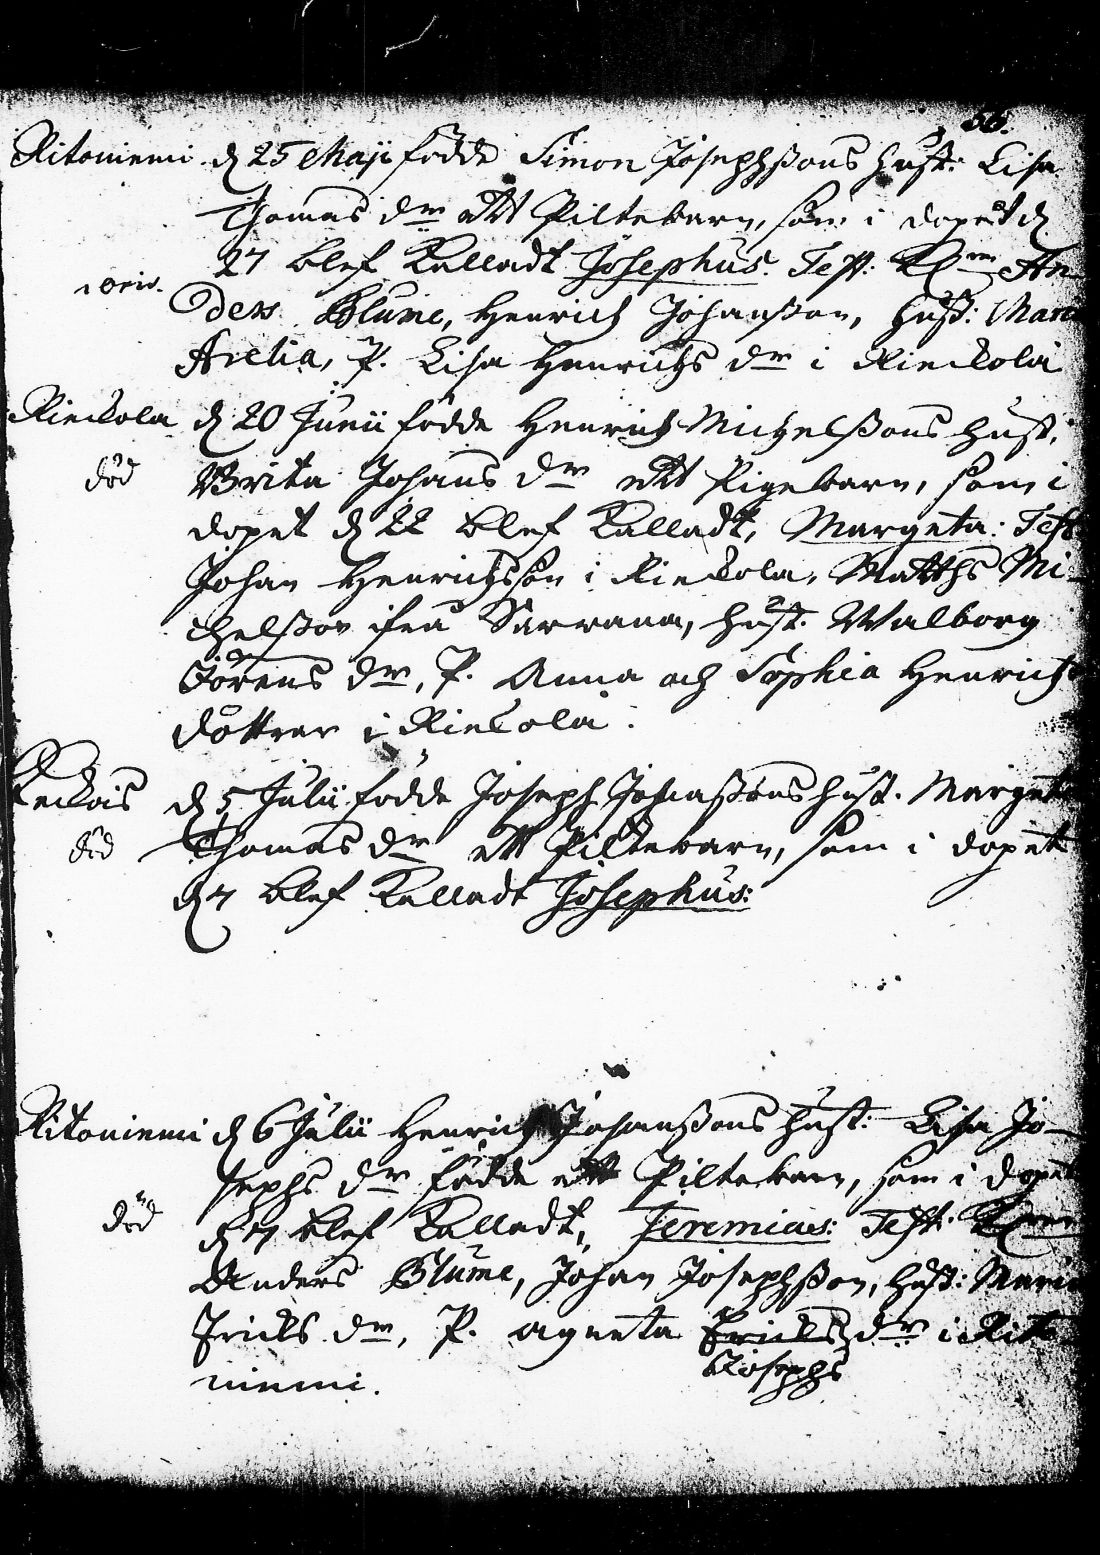 56.
Ritoniemi d 25 Maji födde Simon Josephßons hust: Lisa
Thomas dr ett Piltebarn, som i dopet d
27 blef Kalladt Josephus. Test: An-
ders Blume, Henrich Johanßon, Hust: Maria
P. Lisa Henrichs dr i Rieckola
Rieckola d 20 Junii födde Henrich Michelßons hust.
död Brita Johans dr ett Pigebarn, som i
dopet d 22 blef Kalladt, Margeta: Test
Johan Henrichsson i Rieckola, Matths Mi-
chelßon ifrå Sarvana, hust. Walborg
Jörens dr, P. Anna och Sophia Henrichs
döttrar i Rieckola.
d 5 Julii födde Joseph Johanßons hust. Margeta
död Thomas dr ett Piltebarn, som i dopet
d 7 blef Kalladt Josephus:
Ritoniemi d 6 Julii Henrich Johanßons hust: Lisa Jo-
sephs dr födde ett Piltebarn, som i dopet
död d 7 blef Kalladt, Jeremias: Test:
Anders Blume, Johan Josephßon, hust: Maria
Ericks dr, P. Agneta Ericks dr i Rito-
Josephs
niemi.